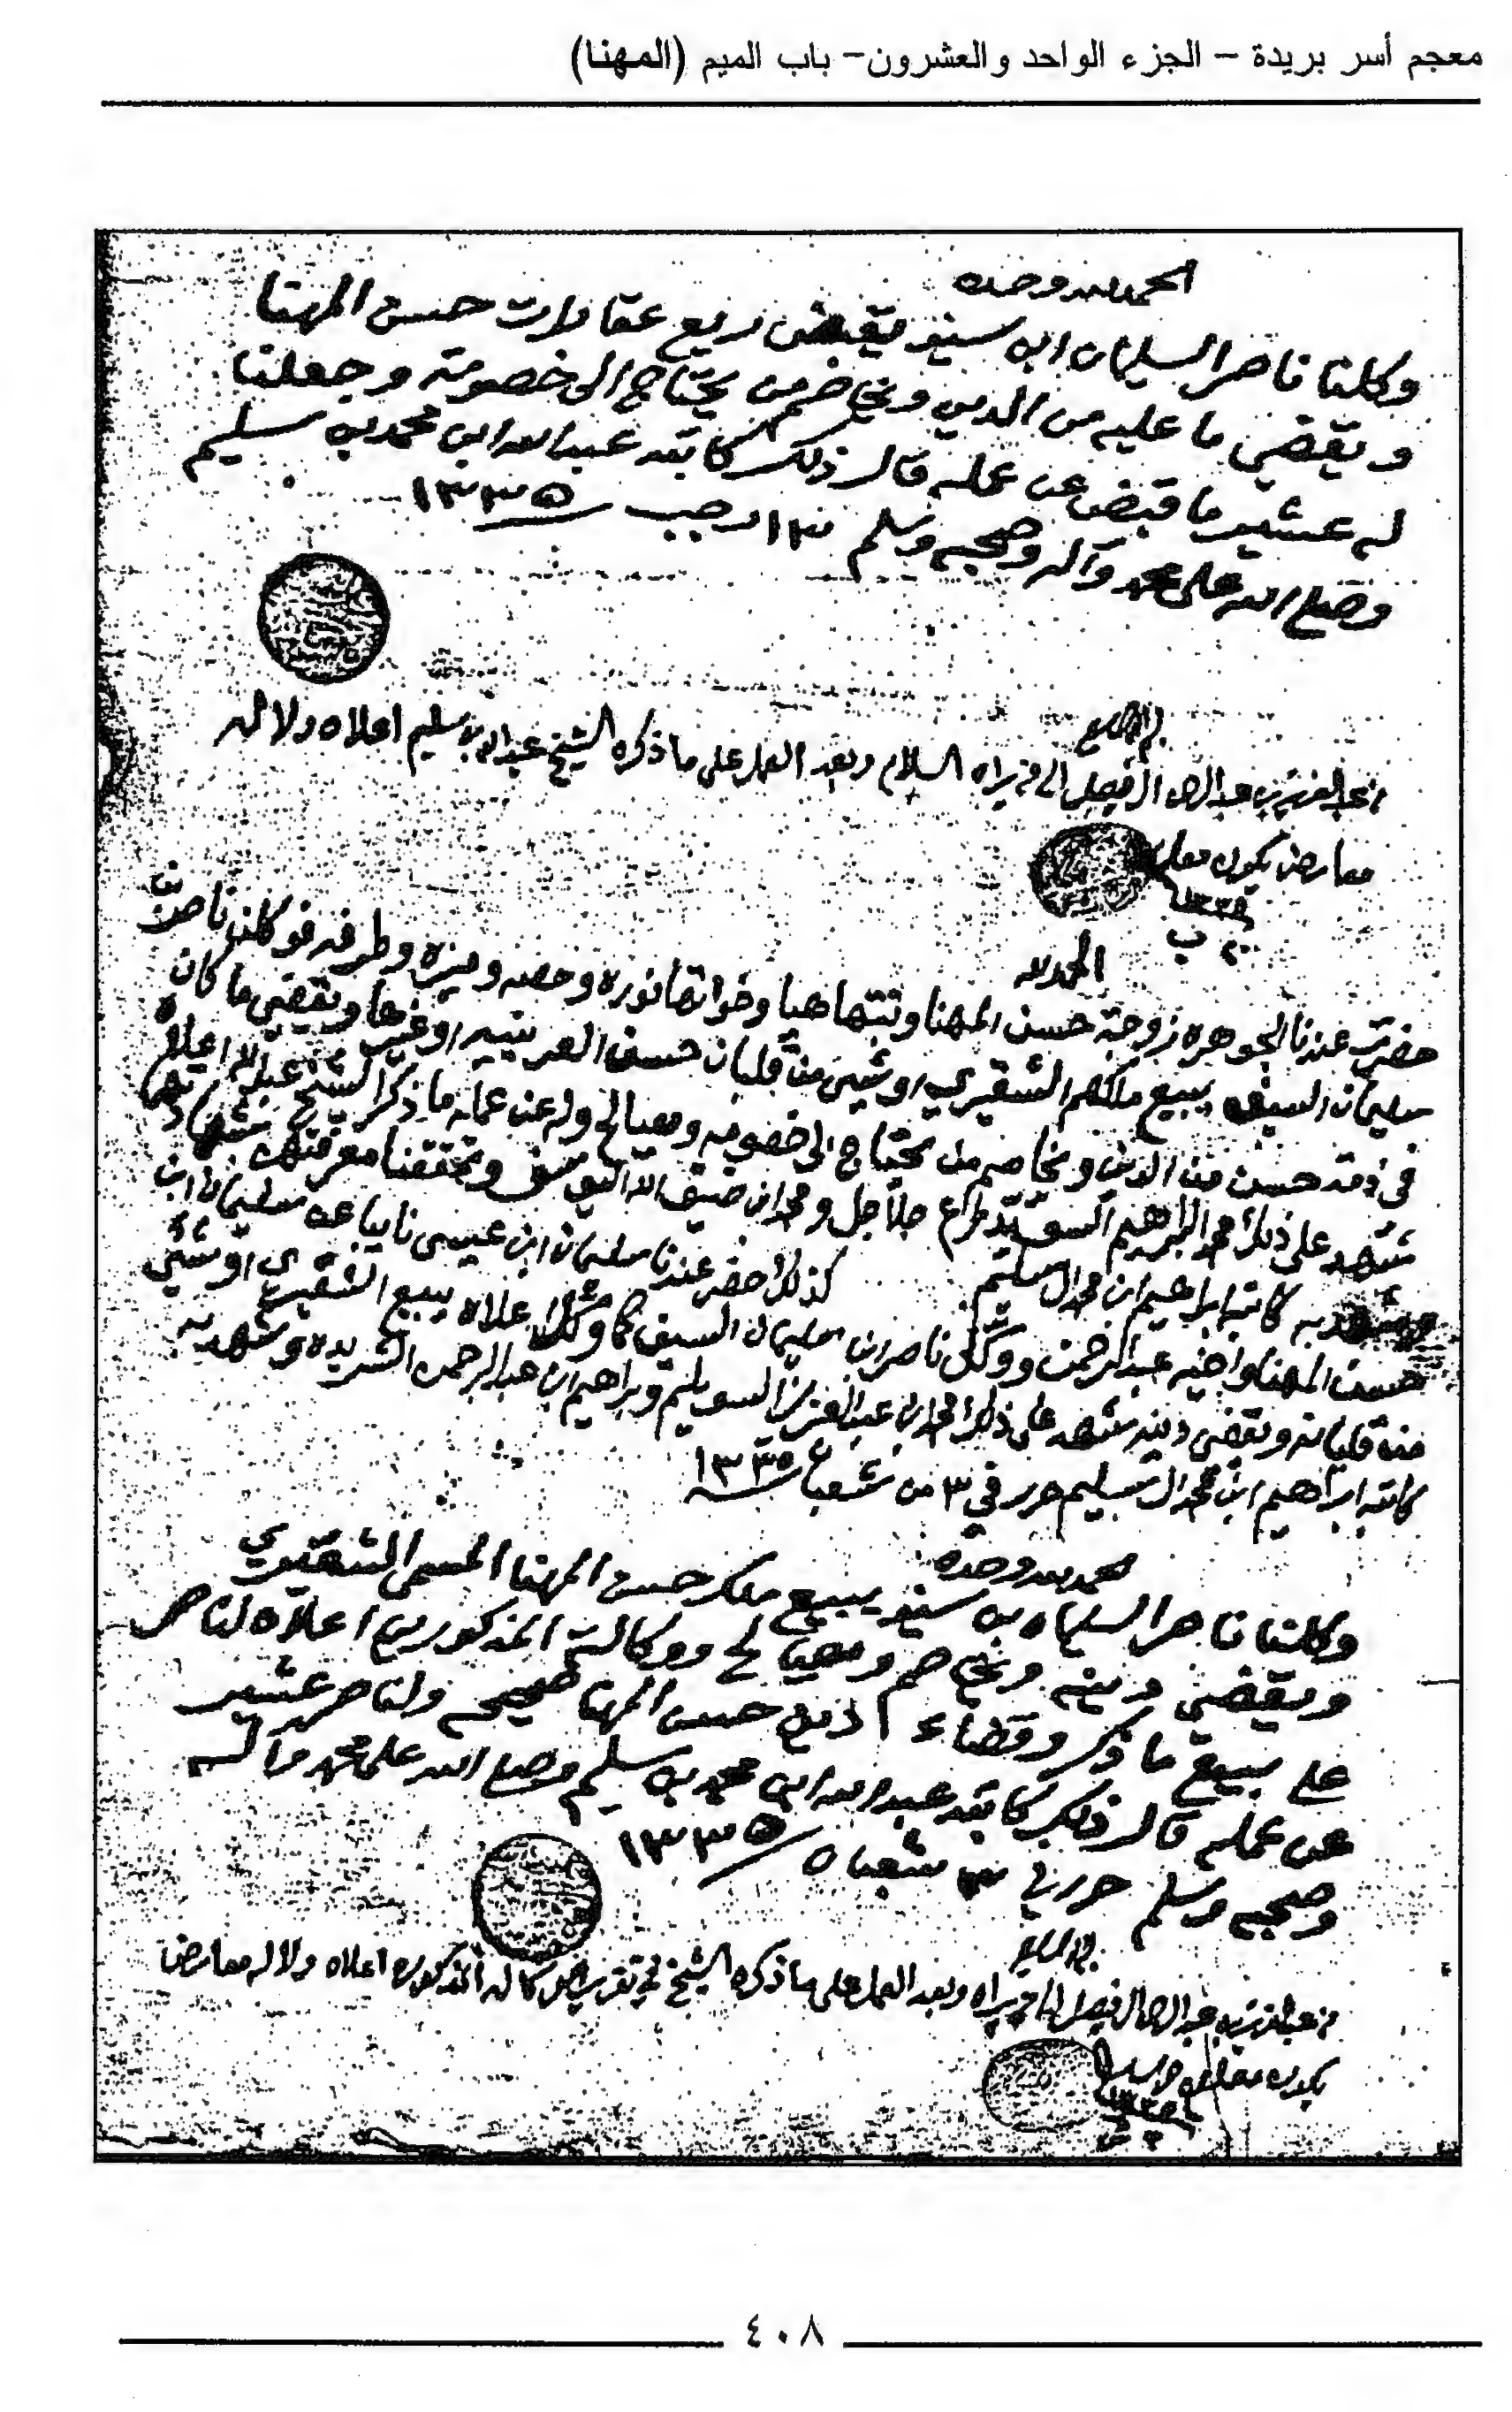 معجم أسر بريدة – الجزء الواحد والعشرون– باب الميم (المهنا)
الحمد لله وحده
وكلنا ناصر السليمان ابن سيف يقبض ريع عقارات حسن المهنا
ويقضي ما عليه من الدين ويخاصم من يحتاج الى خصومته وجعلنا
له عشير ما قبض عن عمله قال ذلك كاتبه عبدالله ابن محمد بن سليم
وصلى الله على محمد وآله وصحبه وسلم ١٣ رجب ١٣٣٥
من عبدالعزيز بن عبدالرحمن الفيصل الى من يراه السلام وبعد العمل على ما ذكره الشيخ عبدالله بن سليم اعلاه ولا له
معارض يكون معلوم
١٣٣٥
الحمد لله
حضرت عندنا الجوهره زوجة حسن المهنا وبنتها هيا وخواتها نوره وحصه ومنيره وطرفه فوكلن ناصر بن
سليمان السيف يبيع ملكهم الشقيري او شيئ من قلبان حسن العريتيه او غيرها ويقضي ما كان
في ذمة حسن من الدين ويخاصم من يحتاج الى خصومه ويصالح وله عن عمله ما ذكر الشيخ عبدالله اعلاه
شهد على ذلك محمد البراهيم راع جلاجل ومحمد ابن ضيف الله اليوسف وتحققنا معرفتهن
وشهد به كاتبه ابراهيم ابن محمد السليم كذلك حضر عندنا سليمان ابن عيسى نايبا عن سليمان ابن
حسن المهنا واخيه عبدالرحمن ووكل ناصر ابن سليمان السيف كما وكلن اعلاه يبيع الشقيري او شيئ
من قلبانه ويقضي دينه شهد على ذلك محمد ابن عبدالعزيز السويلم وبراهيم ابن عبدالرحمن الشريده وشهد به
كاتبه ابراهيم ابن محمد السليم حرر في ٣ من شعبان ١٣٣٥
الحمد لله وحده
وكلنا ناصر السليمان بن سيف يبيع ملك حسن المهنا المسمى الشقيري
ويقضي دينه ويخاصم ويصالح ووكالة المذكورين اعلاه لناصر
على بيع ما ذكر وقضاء دين حسن المهنا صحيحه ولناصر عشير
عن عمله قال ذلك كاتبه عبدالله ابن محمد بن سليم وصلى الله على محمد وآله
وصحبه وسلم حرر في ٣ شعبان ١٣٣٥
من عبدالعزيز بن عبدالرحمن الفيصل الى من يراه وبعد العمل على ما ذكره الشيخ في تقرير وكالة المذكوره اعلاه ولا له معارض
يكون معلوم والسلام
٤٠٨